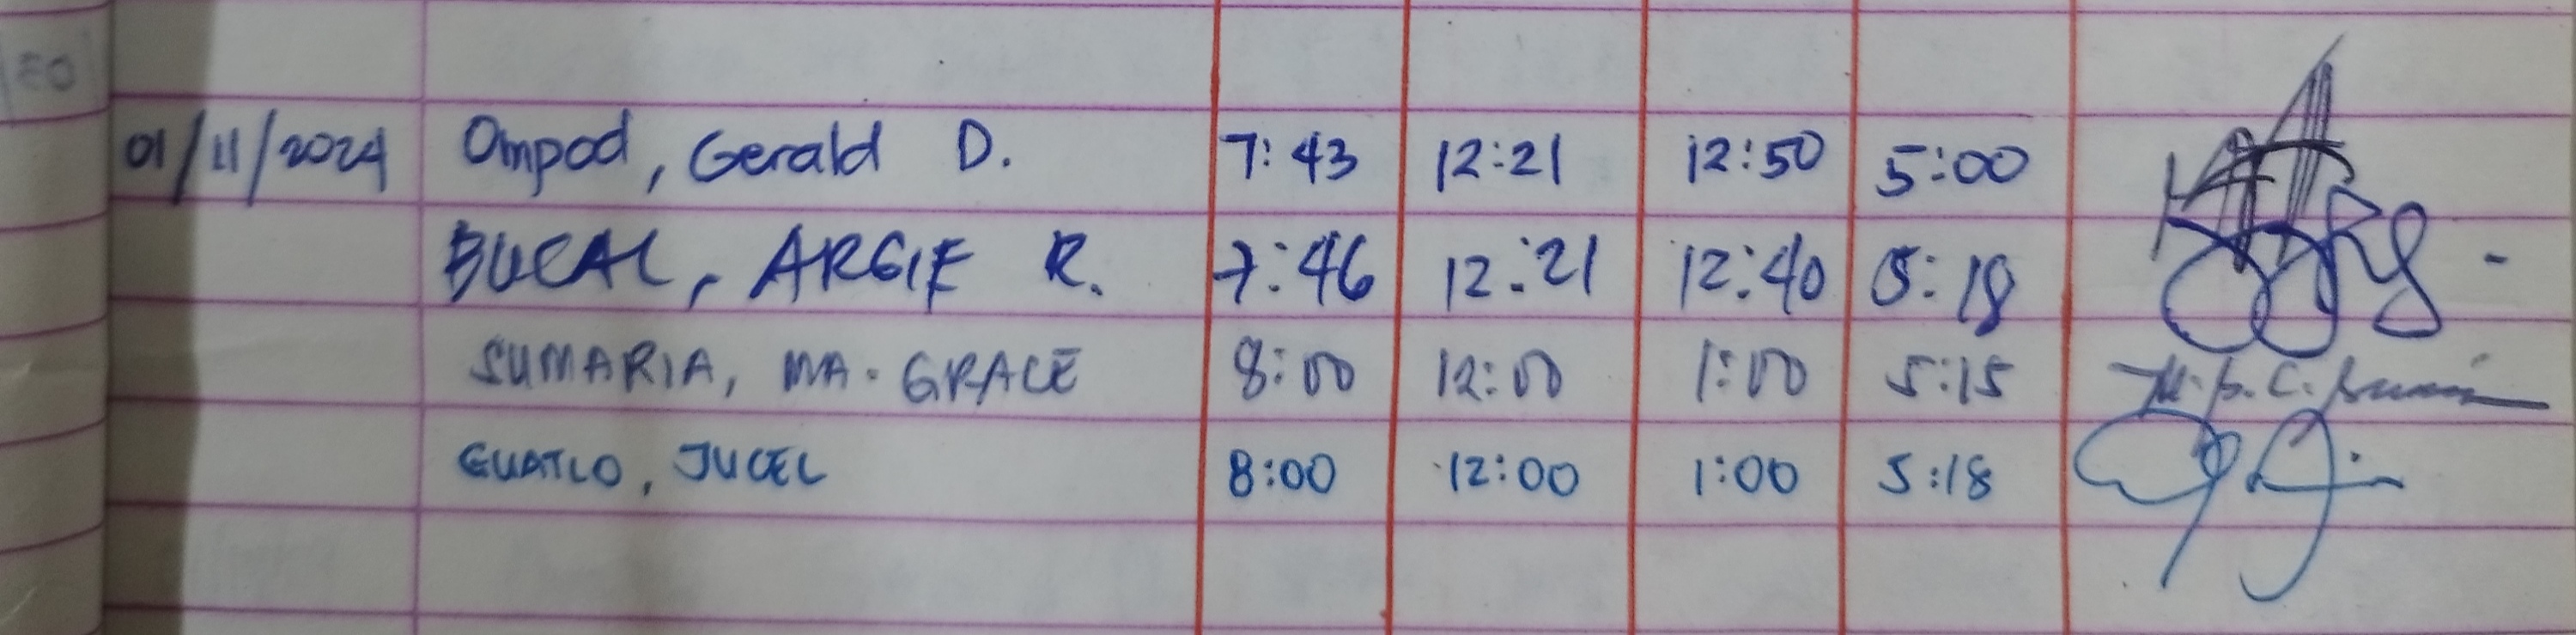 EO
01/11/2024 Ompod, Gerald D. 7:43 12:21 12:50 5:00
BUCAL, ARGIE R. 7:46 12:21 12:40 5:18
SUMARIA, MA. GRACE 8:00 12:00 1:00 5:15
GUATLO, JUCEL 8:00 12:00 1:00 5:18